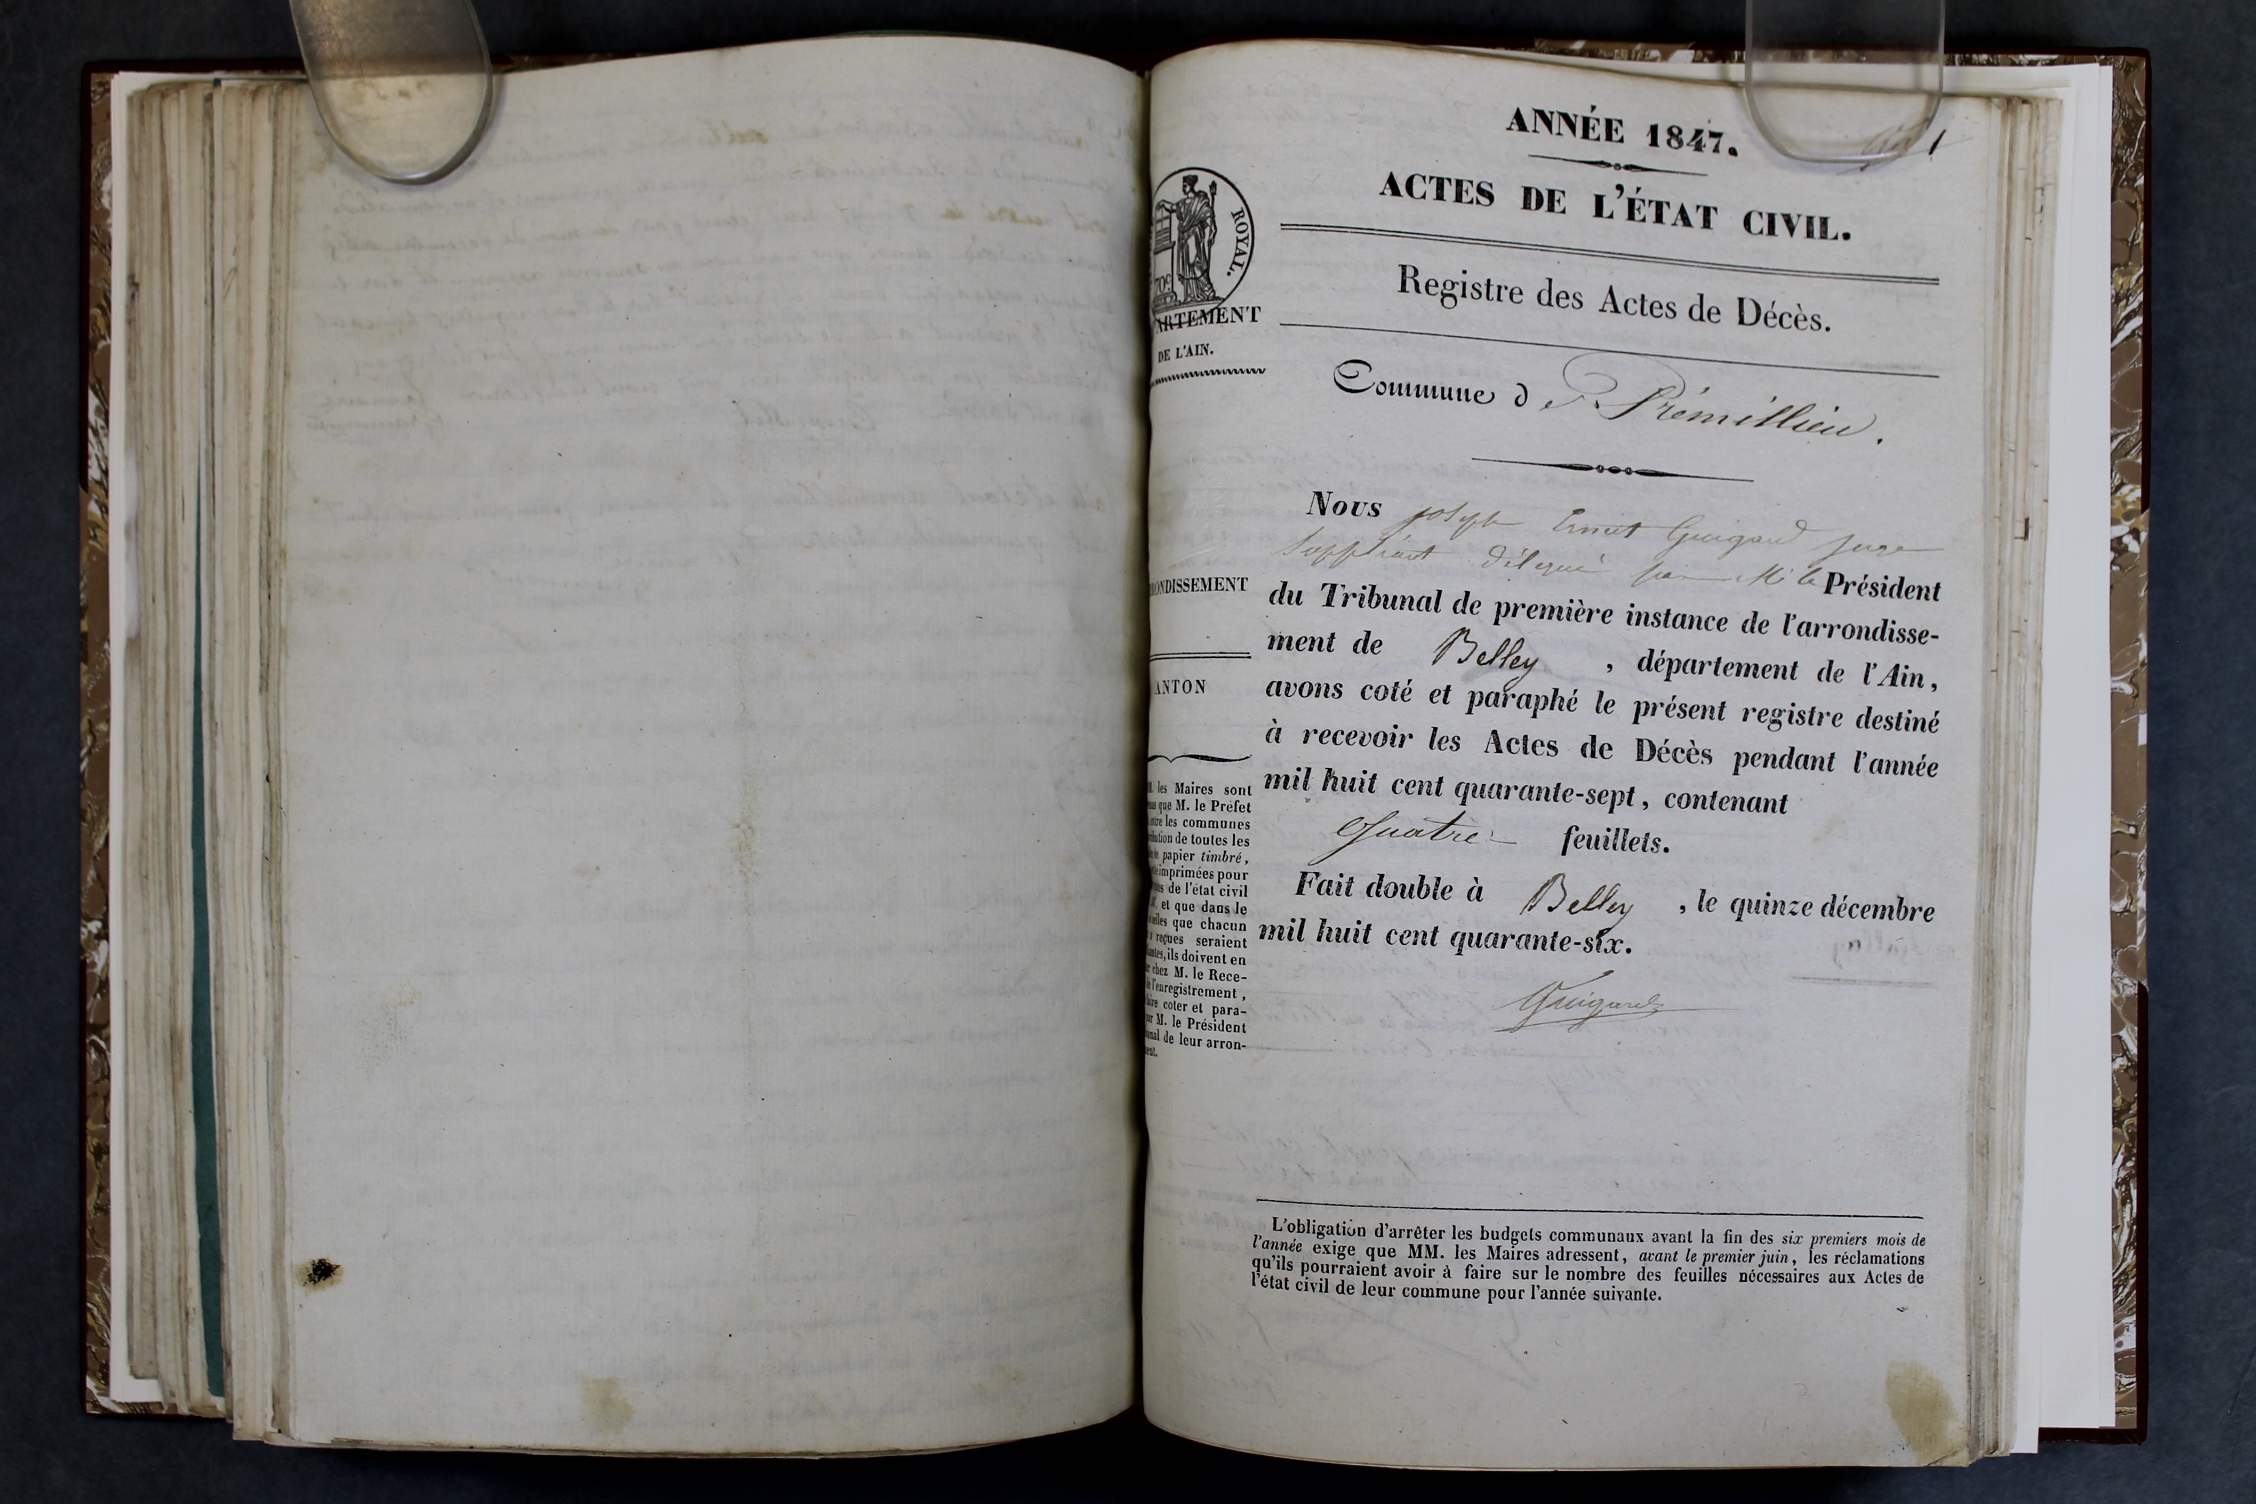 ANNÉE 1847.
1
ACTES DE L'ÉTAT CIVIL.
ROYAL.
70c
Registre des Actes de Décès.
ARTEMENT
DE L'AIN.
Commune de Prémillieu.
Nous joseph Ernest Guigard juge
Suppléant délégué par M. le Président
du Tribunal de première instance de l'arrondisse-
ment de Belley, département de l'Ain,
avons coté et paraphé le présent registre destiné
à recevoir les Actes de Décès pendant l'année
mil huit cent quarante-sept, contenant
Quatre feuillets.
Fait double à Belley, le quinze décembre
mil huit cent quarante-six.
Guigard
RONDISSEMENT
ANTON
M. les Maires sont
que M. le Préfet
entre les communes
bution de toutes les
de papier timbré,
imprimées pour
de l'état civil
et que dans le
elles que chacun
reçues seraient
antes, ils doivent en
chez M. le Rece-
de l'enregistrement,
faire coter et para-
par M. le Président
unal de leur arron-
ment.
L'obligation d'arrêter les budgets communaux avant la fin des six premiers mois de
l'année exige que MM. les Maires adressent, avant le premier juin, les réclamations
qu'ils pourraient avoir à faire sur le nombre des feuilles nécessaires aux Actes de
l'état civil de leur commune pour l'année suivante.